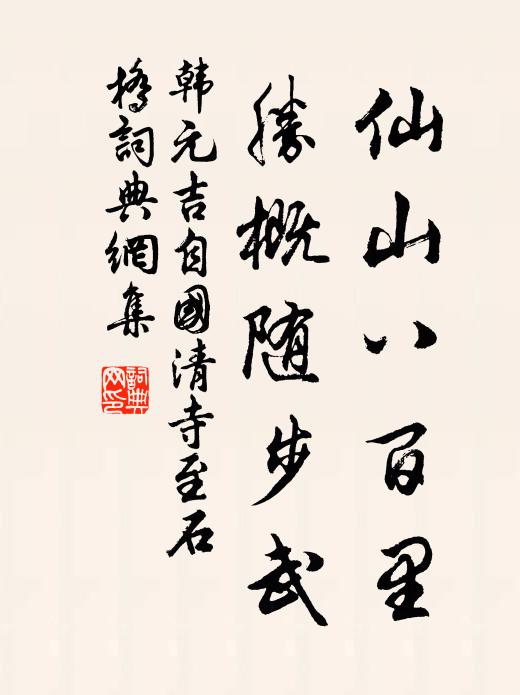 仙山八百里
勝概随步武
韩元吉自國清寺至石
橋詞典網集
詞典
网印